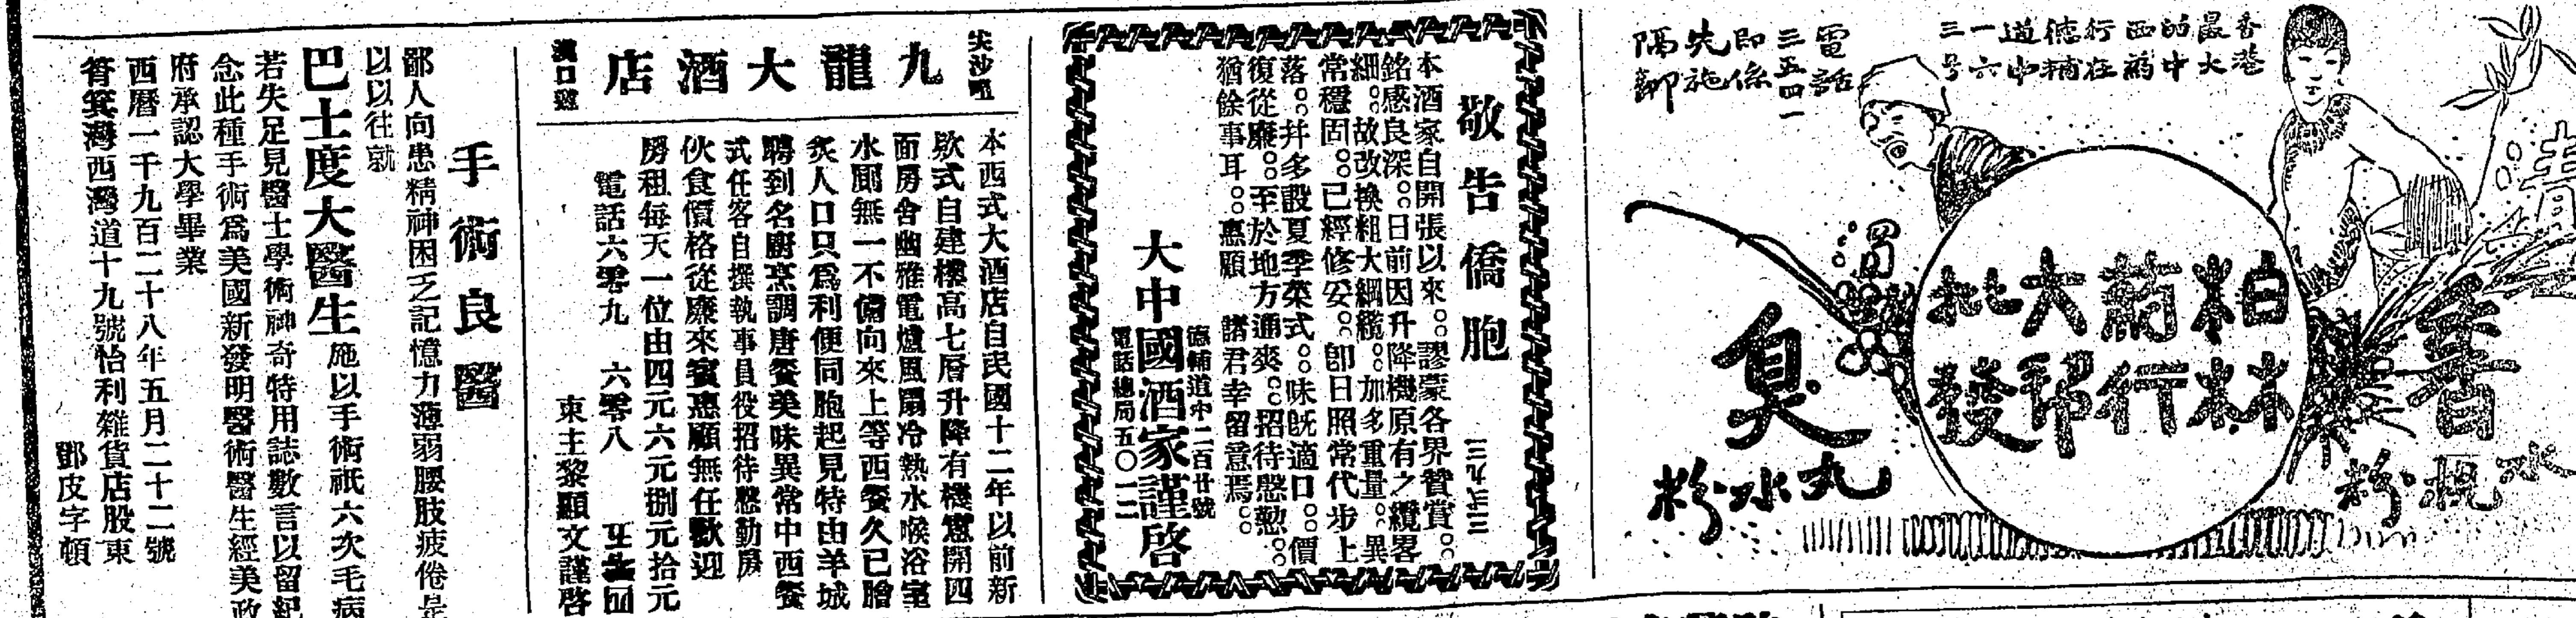 香港最大的中西葯行在德輔道中一六三号
電話三五四一
即係先施隔鄰
柏林葯行大帮批發
臭丸水粉
敬告僑胞
本酒家自開張以來。謬蒙各界贊賞。
銘感良深。日前因升降機原有之纜畧
細。故改換粗大鋼纜。加多重量。異
常穩固。已經修妥。即日照常代步上
落。并多設夏季菜式。味旣適口。價
復從廉。至於地方通爽。招待慇懃。
猶餘事耳。惠顧諸君幸留意焉。
德輔道中二百廿號
大中國酒家謹啓
電話總局五〇一二
尖沙咀
九龍大酒店
漢口道
本西式大酒店自民國十二年以前新
欵式自建樓高七層升降有機窻開四
面房舍幽雅電爐風扇冷熱水喉浴室
水厠無一不備向來上等西餐久已膾
炙人口只爲利便同胞起見特由羊城
聘到名廚烹調唐餐美味異常中西餐
式任客自撰執事員役招待慇勤房
伙食價格從廉來賓惠顧無任歡迎
房租每天一位由四元六元捌元拾元
電話六零九 六零八
東主黎顯文謹啓
手術良醫
鄙人向患精神困乏記憶力薄弱腰肢疲倦是
以以往就
巴士度大醫生施以手術祇六次毛病
若失足見醫士學術神奇特用誌數言以留紀
念此種手術爲美國新發明醫術醫生經美政
府承認大學畢業
西曆一千九百二十八年五月二十二號
筲箕灣西灣道十九號怡利雜貨店股東
鄧皮字頓